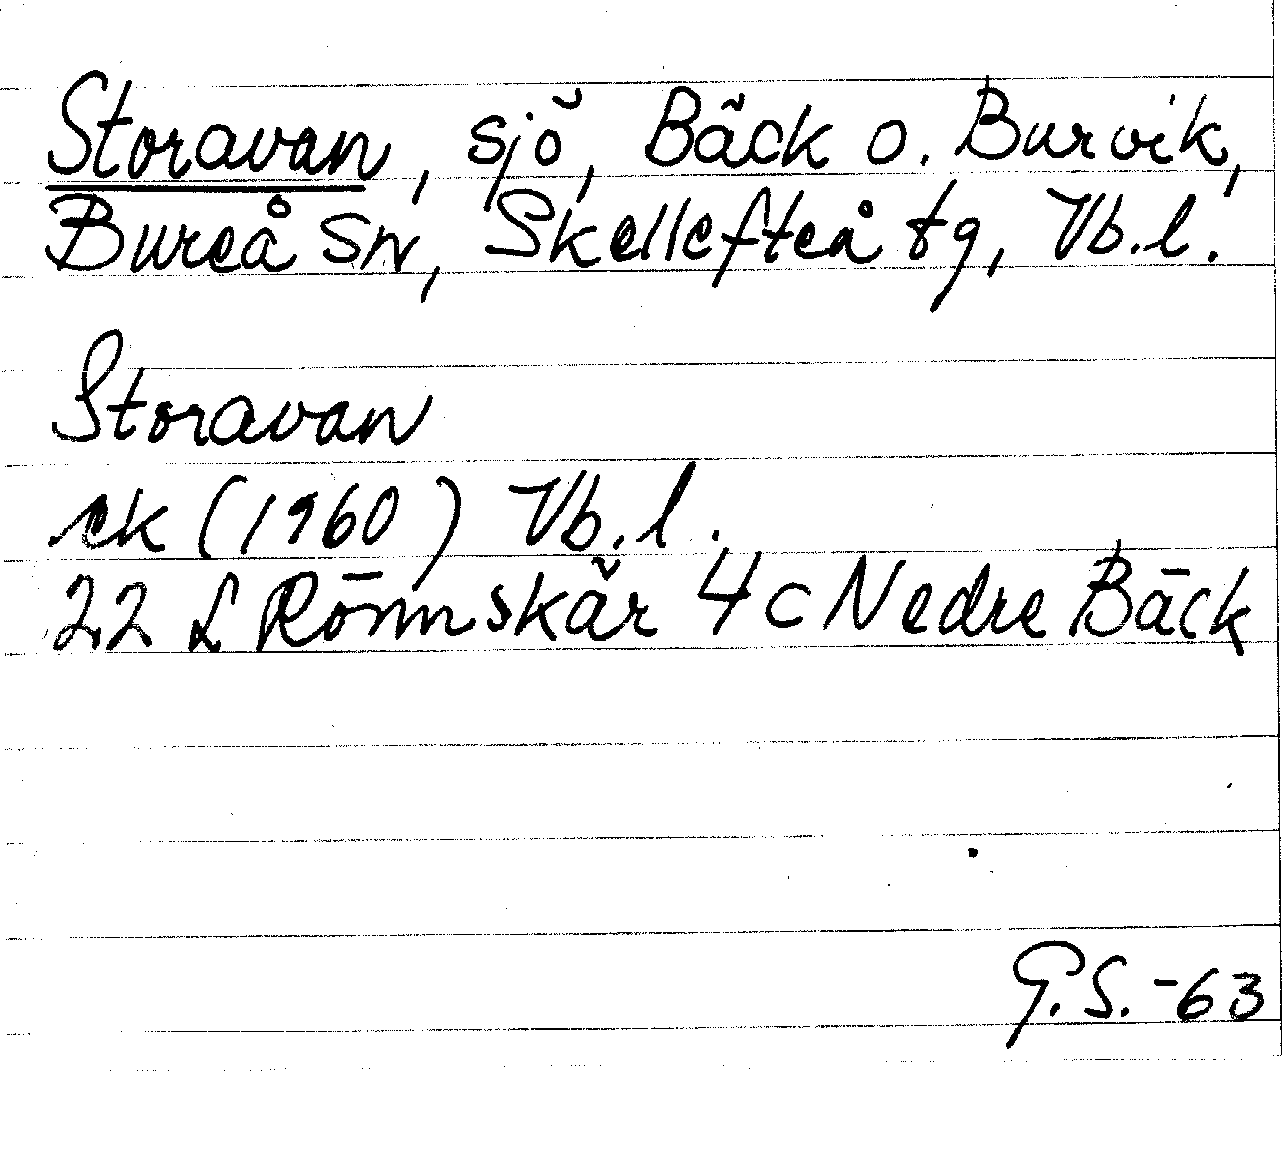 Storavan, sjö, Bäck o. Burvik,
Bureå sn, Skellefteå tg, Vb.l.
Storavan
ek (1960) Vb.l.
22 L Rönnskär 4c Nedre Bäck
G.S.-63